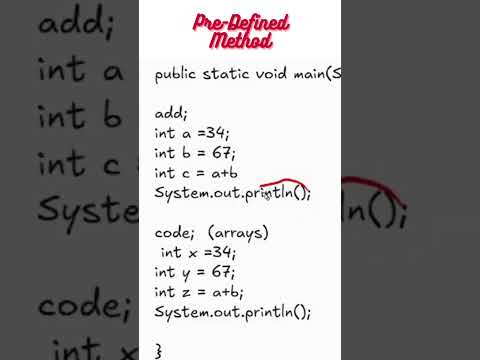 Pre-Defined
Method
public static void main(S
add;
int a =34;
int b = 67;
int c = a+b
System.out.println();
code; (arrays)
int x =34;
int y = 67;
int z = a+b;
System.out.println();
}
add;
int a
int b
int c
System
code;
int x
ln();